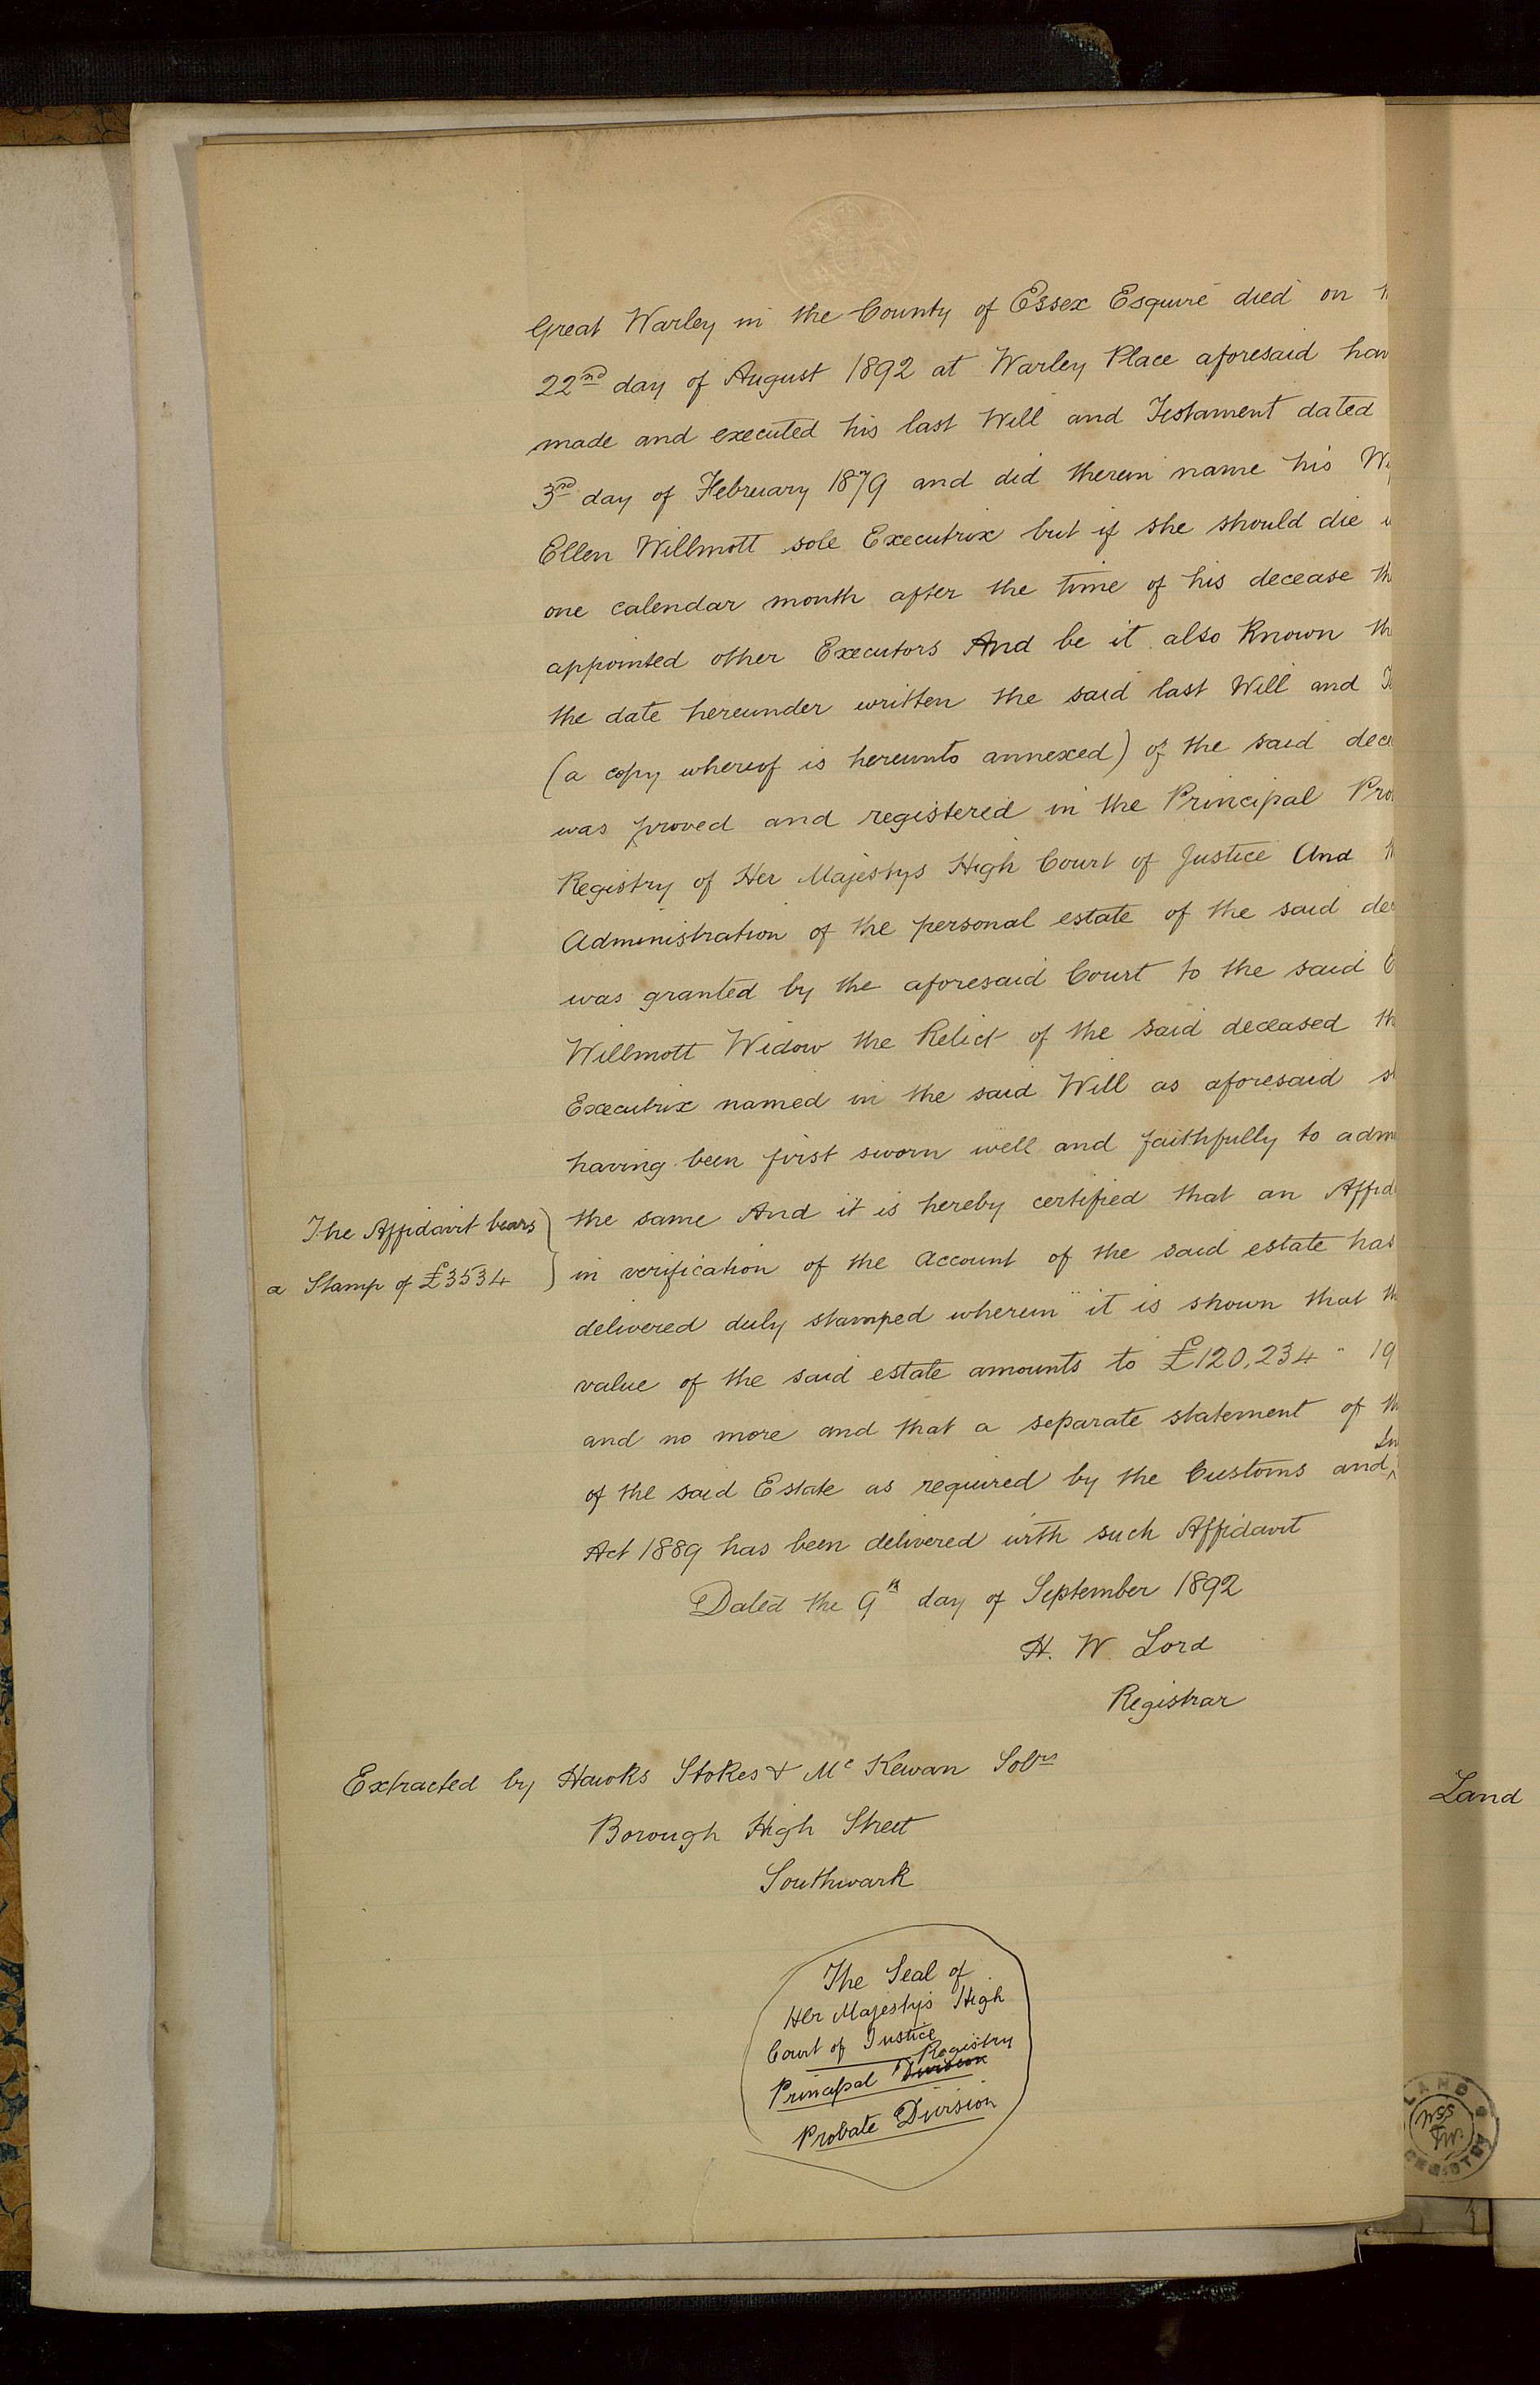 Great Warley in the County of Essex Esquire died on
22nd day of August 1892 at Warley Place aforesaid hav
made and executed his last Will and Testament dated
3rd day of February 1879 and did therein name his W
Ellen Willmott sole Executrix but if she should die
one calendar month after the time of his decease th
appointed other Executors And be it also known th
the date hereunder written the said last Will and
(a copy whereof is hereunto annexed) of the said dece
was proved and registered in the Principal Pro
Registry of Her Majestys High Court of Justice And
Administration of the personal estate of the said de
was granted by the aforesaid Court to the said
Willmott Widow the Relict of the said deceased th
Executrix named in the said Will as aforesaid s
having been first sworn well and faithfully to adm
The Affidavit bears
a Stamp of £3534
the same And it is hereby certified that an Affid
in verification of the account of the said estate has
delivered duly stamped wherein it is shown that th
value of the said estate amounts to £120,234 " 19
and no more and that a separate statement of th
of the said Estate as required by the Customs and In
Act 1889 has been delivered with such Affidavit
Dated the 9th day of September 1892
H. W. Lord
Registrar
Extracted by Hawks Stokes & Mc Kewan Solrs
Borough High Street
Southwark
The Seal of
Her Majestys High
Court of Justice
Registry
Principal Division
Probate Division
Land